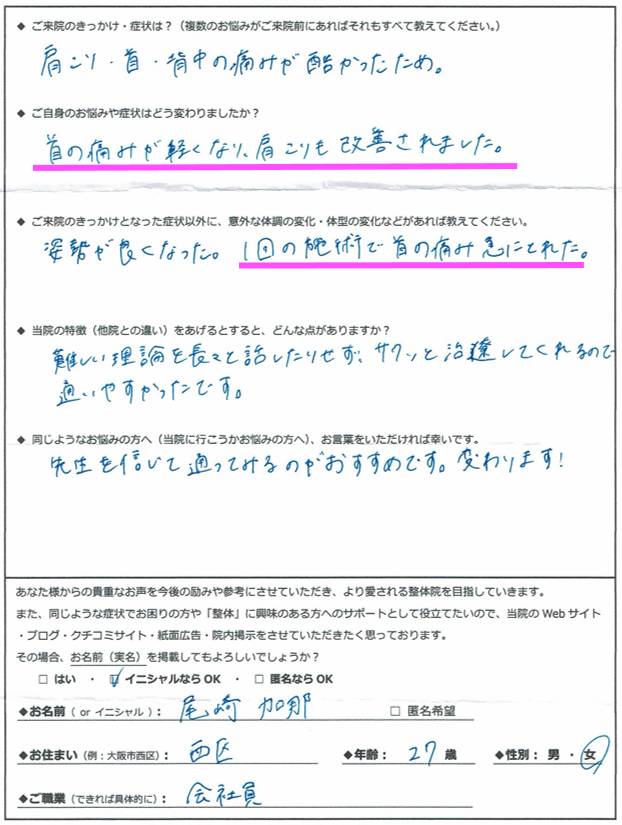 ◆ ご来院のきっかけ・症状は？（複数のお悩みがご来院前にあればそれもすべて教えてください。）
肩こり・首・背中の痛みが酷かったため。
◆ ご自身のお悩みや症状はどう変わりましたか？
首の痛みが軽くなり、肩こりも改善されました。
◆ ご来院のきっかけとなった症状以外に、意外な体調の変化・体型の変化などがあれば教えてください。
姿勢が良くなった。1回の施術で首の痛み急にとれた。
◆ 当院の特徴（他院との違い）をあげるとすると、どんな点がありますか？
難しい理論を長々と話したりせず、サクッと治療してくれるので
通いやすかったです。
◆ 同じようなお悩みの方へ（当院に行こうかお悩みの方へ）、お言葉をいただければ幸いです。
先生を信じて通ってみるのがおすすめです。変わります！
あなた様からの貴重なお声を今後の励みや参考にさせていただき、より愛される整体院を目指していきます。
また、同じような症状でお困りの方や「整体」に興味のある方へのサポートとして役立てたいので、当院の Web サイト
・ブログ・クチコミサイト・紙面広告・院内掲示をさせていただきたく思っております。
その場合、お名前（実名）を掲載してもよろしいでしょうか？
□ はい ・ ☑ イニシャルなら OK ・ □ 匿名なら OK
◆お名前（ or イニシャル ）： 尾崎 加那 □ 匿名希望
◆お住まい（例：大阪市西区）： 西区 ◆年齢： 27 歳 ◆性別： 男 ・ 女
◆ご職業（できれば具体的に）： 会社員